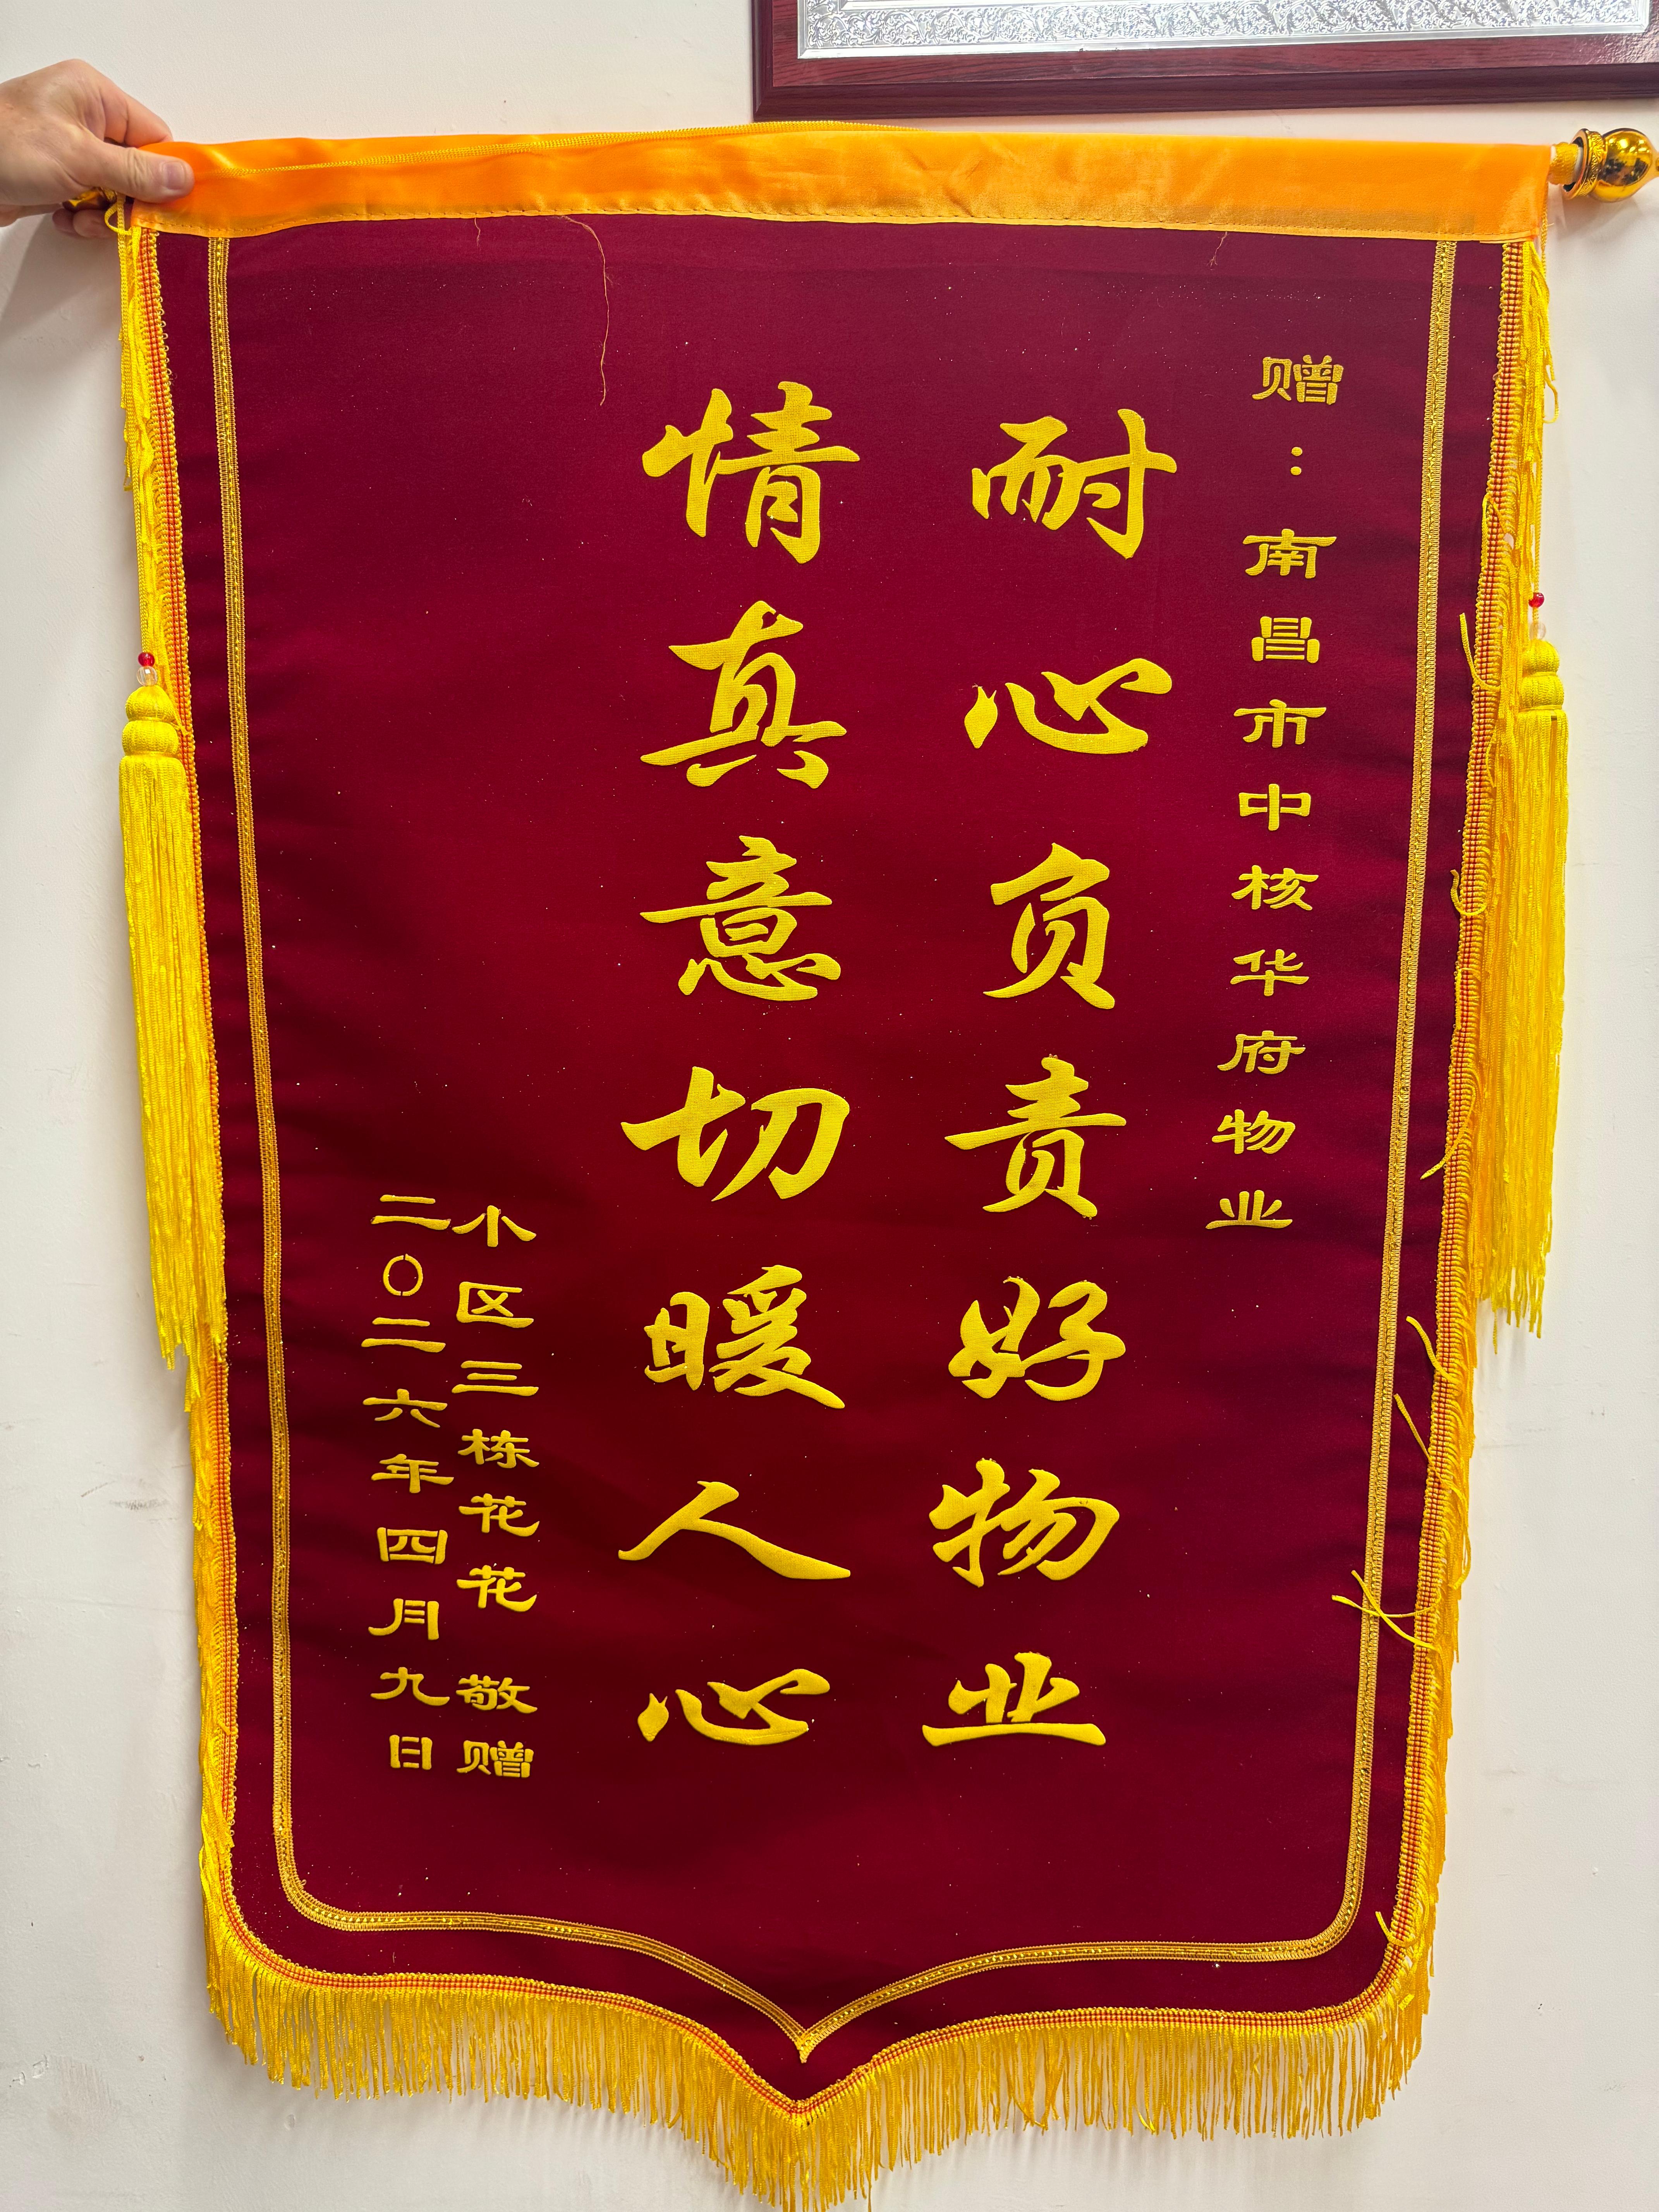 赠：南昌市中核华府物业
耐心负责好物业
情真意切暖人心
小区三栋花花 敬赠
二〇二六年四月九日